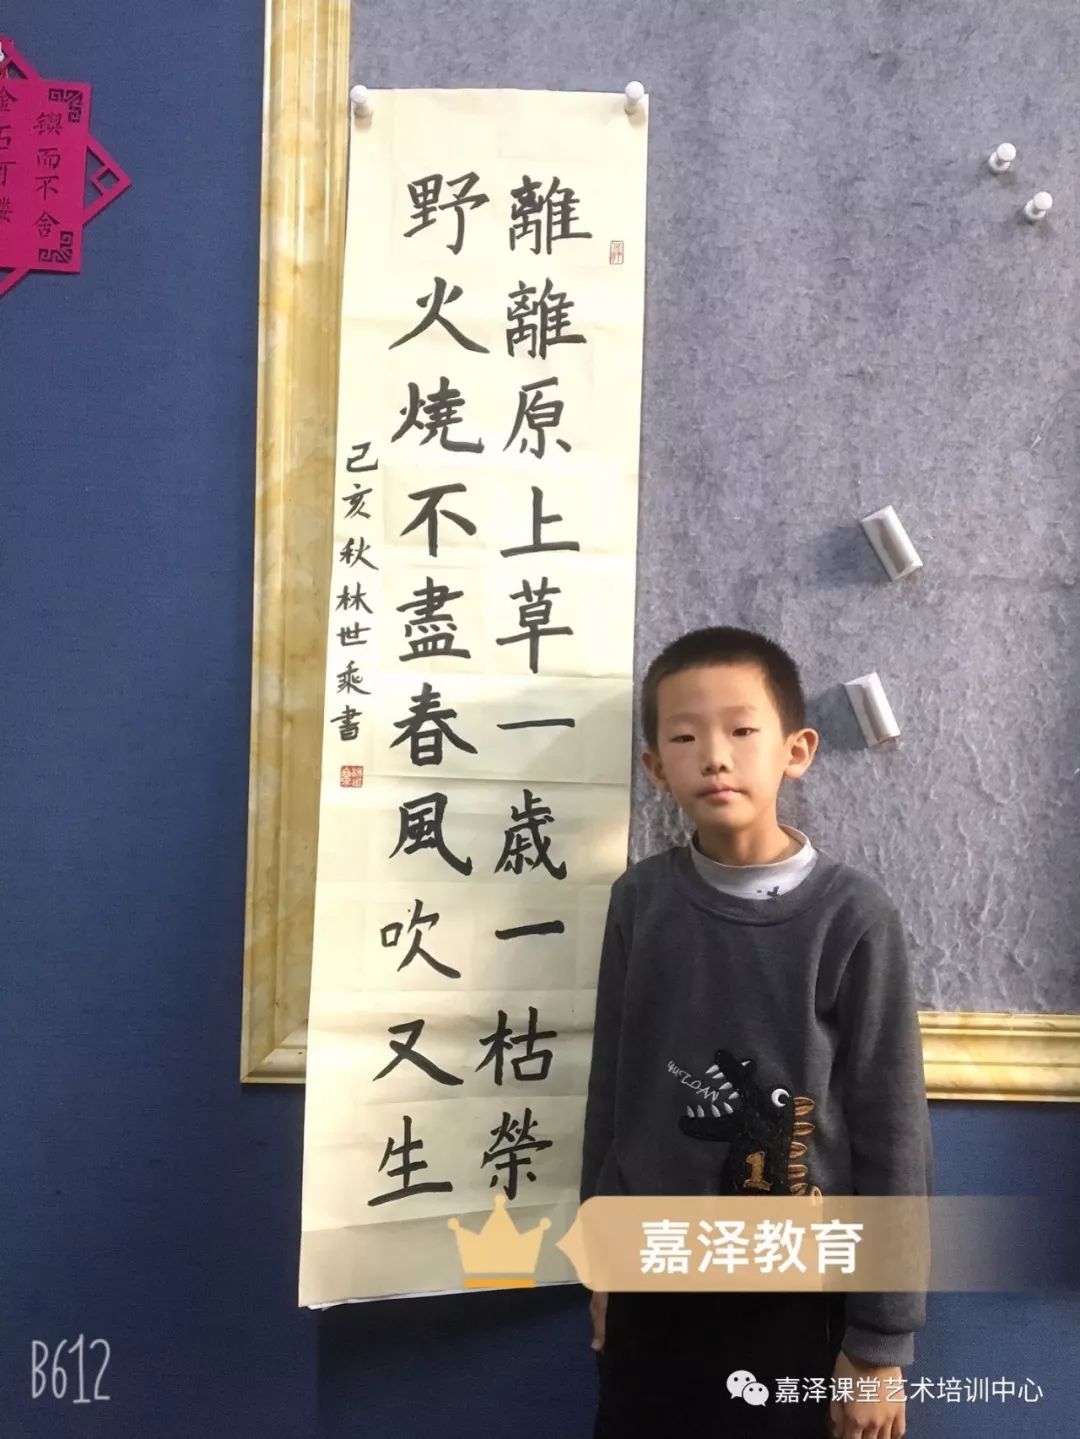 離離原上草一歲一枯榮
野火燒不盡春風吹又生
己亥秋林世乘書
鍥而不舍
金石可镂
1
嘉泽教育
B612
嘉泽课堂艺术培训中心